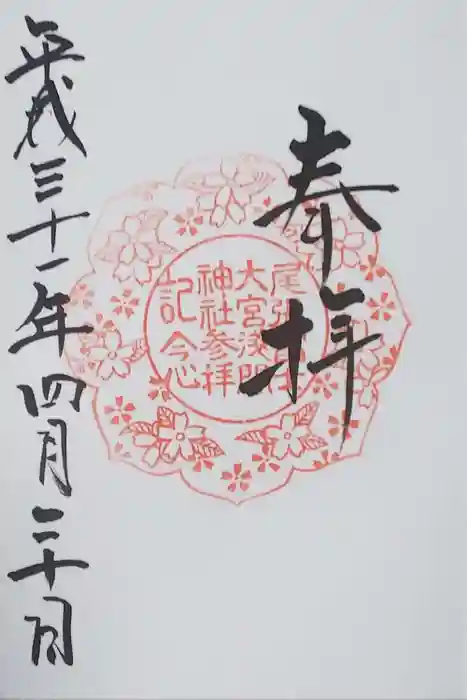 奉拝
尾張
大宮浅間
神社参拝
記念
平成三十一年四月三十日